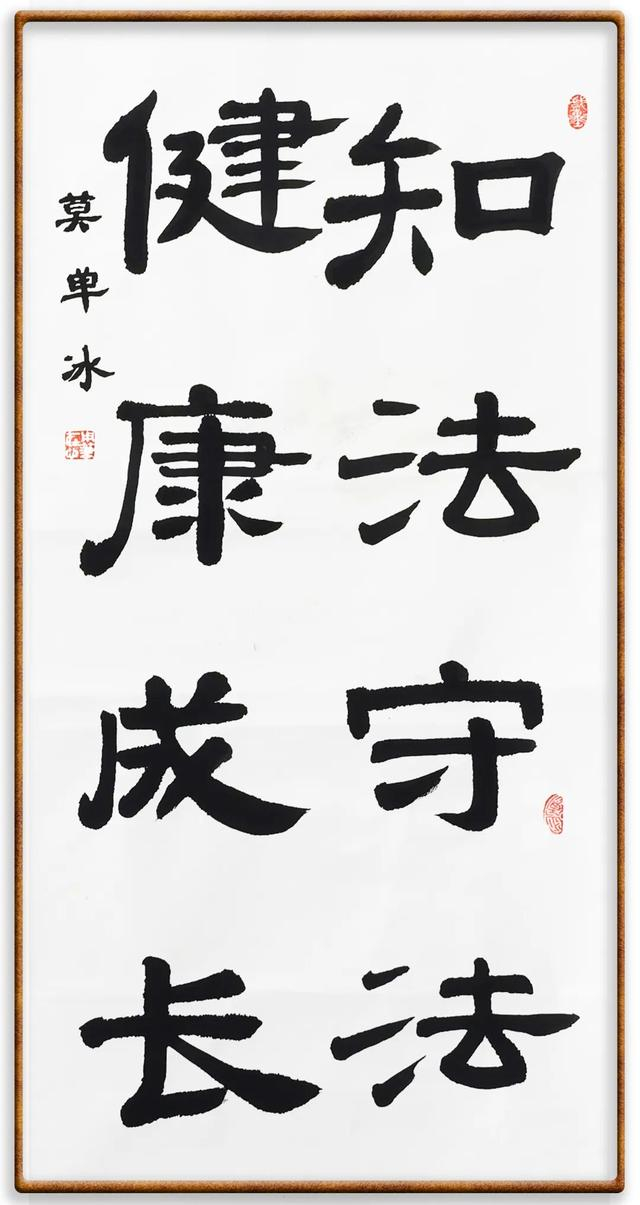 知法守法
健康成长
莫单冰